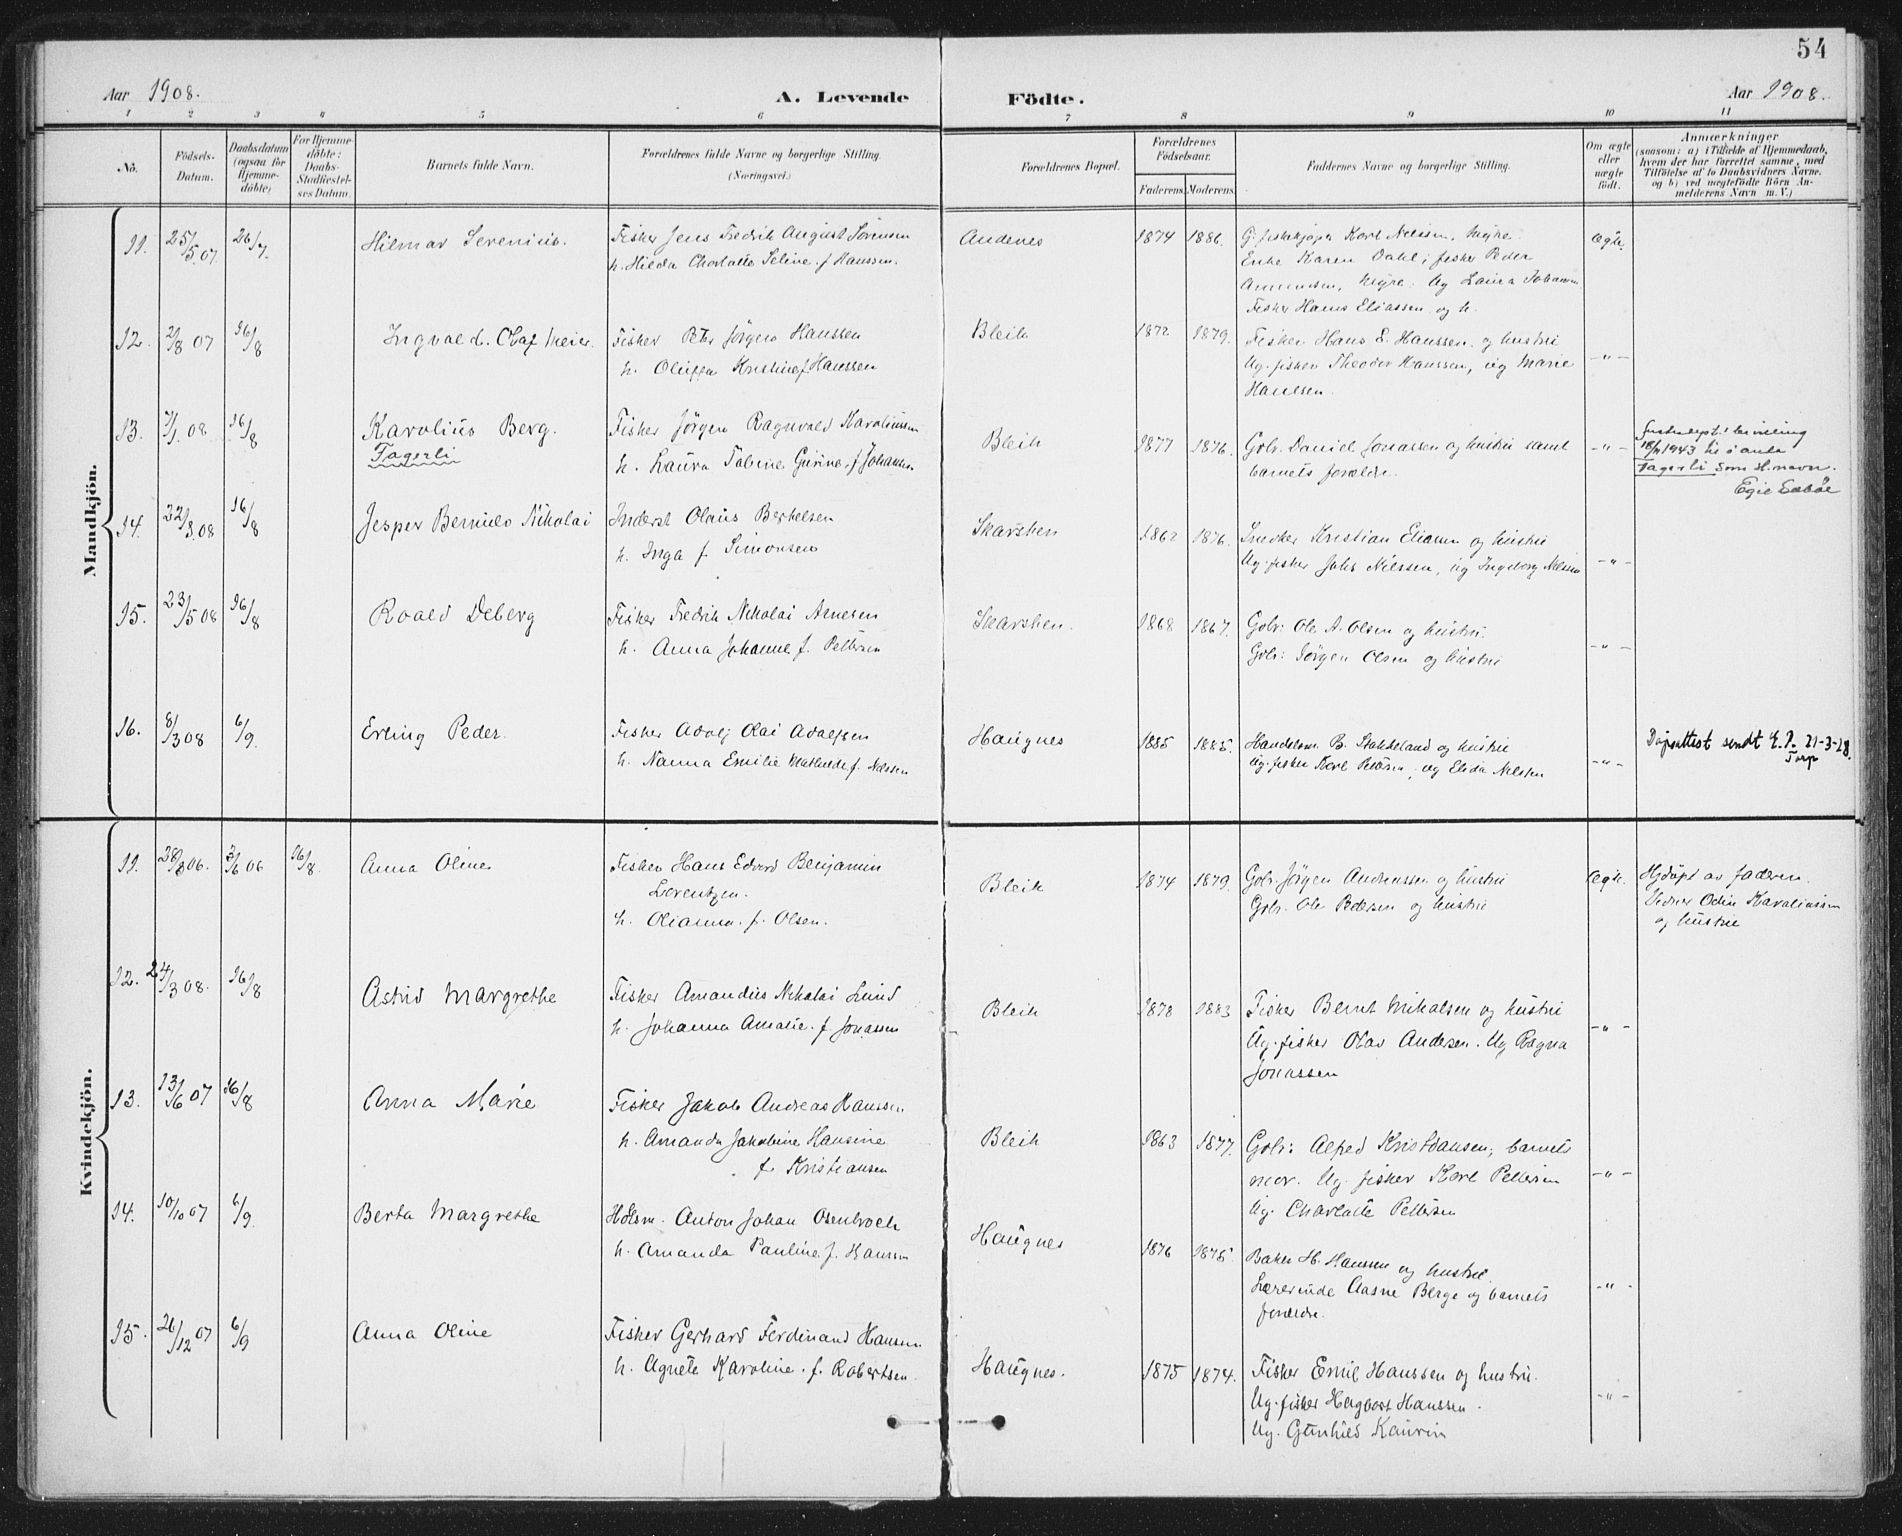 54
Aar 1908.
A. Levende Födte.
Aar 1908.
1 2 3 4 5 6 7 8 9 10 11
No.
Födsels-
Datum.
Daabsdatum
(ogsaa for
Hjemme-
döbte)
For Hjemme-
döbte:
Daabs-
Stadfæstel-
ses Datum.
Barnets fulde Navn.
Forældrenes fulde Navne og borgerlige Stilling
(Næringsvei.)
Forældrenes Bopæl.
Forældrenes
Födselsaar.
Faderens. Moderens.
Faddernes Navne og borgerlige Stilling.
Om ægte
eller
uægte
født.
Anmærkninger
(saasom: a) i Tilfælde af Hjemmedaab,
hvem der har forrettet samme, med
Tilföielse af to Daabsvidners Navne.
og b) ved uægtefödte Börn An-
melderens Navn m. V.)
Mandkjön.
11. 25/5.07. 26/7. Hilmar Serenius. Fisker Jens Fredrik August Sørensen
h. Hilda Charlotte Seline f Hanssen.
Andenes 1874 1886. G. fiskekjøper Karl Nelssen, Myre.
Enke Karen Dahl; fisker Peder
Amundsen, Myre. Ug Laura Johansen
Fisker Hans Eliassen og h.
ægte.
12. 2/8 07 16/8 Ingvald Olaf Meier. Fisker Peter Jørgen Hanssen
h. Oluffa Kristine f Hanssen
Bleik 1872 1879. Fisker Hans E. Hanssen og hustru
Ug. fisker Theodor Hanssen, ug Marie
Hanssen.
-"-
13. 7/1 08 16/8 Karolius Berg. Fisker Jørgen Ragnvald Karoliussen
Fagerli
h. Laura Tabine Gurine f Johansen
Bleik 1877 1876. Gbr. Daniel Jonassen og hustru samt
barnets forældre.
-"-
1943 til å anta
Fagerli som H.navn.
14. 22/3.08 16/8 Jesper Bernudo Nikolai Inderst Olaus Berhelsen
h. Inga f. Simonsen
Skarsten 1862 1876. Kristian Eliassen og hustru
Ug. fisker Johs Nilssen, ug Ingeborg Nilssen
-"-
15. 23/5 08 16/8 Roald Deberg Fisker Fredrik Nikolai Arnesen
h. Anna Johanne f. Pettersen
Skarsten. 1868 1867. Gbr: Ole A. Olsen og hustru.
Gbr: Jørgen Olsen og hustru
-"-
16. 8/3 08 6/9. Erling Peder. Fisker Adolf Olai Adolfsen
h. Nanna Emilie Mathilde f. Nilssen
Haugnes 1885 1885. Handelsm. B. Stakkeland og hustru
Ug. fisker Karl Pettersen, ug Elida Nilsen
-"-
Dåpsattest sendt E.P. 21-3-28.
Torp
Kvindekjön.
11. 28/3 06. 3/6 06 16/8. Anna Oline Fisker Hans Edvard Benjamin
Lorentzen.
h. Olianna. f. Olsen.
Bleik 1874 1879. Gbr. Jørgen Andreassen og hustru
Gbr. Ole Pedersen og hustru
ægte. Hjdøpt av faderen.
Vidner Odin Karoliussen
og hustru
12. 24/3 08. 16/8 Astrid Margrethe Fisker Amandus Nikolai Lund
h. Johanna Amalie. f. Jonassen
Bleik 1878 1883 Fisker Bernt Mikalsen og hustru
Ug. fisker Olav Andersen. Ug Ragna
Jonassen
-"-
13. 13/6 07 16/8 Anna Marie Fisker Jakob Andreas Hanssen
h. Amanda Jakobine Hansine
f. Kristiansen
Bleik 1863 1877. Gbr: Alfred Kristiansen; barnets
mor. Ug. fisker Karl Pettersen
Ug. Charlotte Pettersen
-"-
14. 10/10 07 6/9. Berta Margrethe Hdlsm. Anton Johan Osenbroch
h. Amanda Pauline f. Hanssen
Haugnes 1876 1875. Baker H. Hanssen og hustru.
Lærerinde Aasne Berge og barnets
forældre.
-"-
15. 26/12 07 6/9 Anna Oline Fisker Gerhard Ferdinand Hansen
h. Agnete Karoline. f. Robertsen.
Haugnes. 1875 1874. Fisker Emil Hanssen og hustru.
Ug. fisker Hagbart Hanssen.
Ug. Gunhild Kaurin
-"-